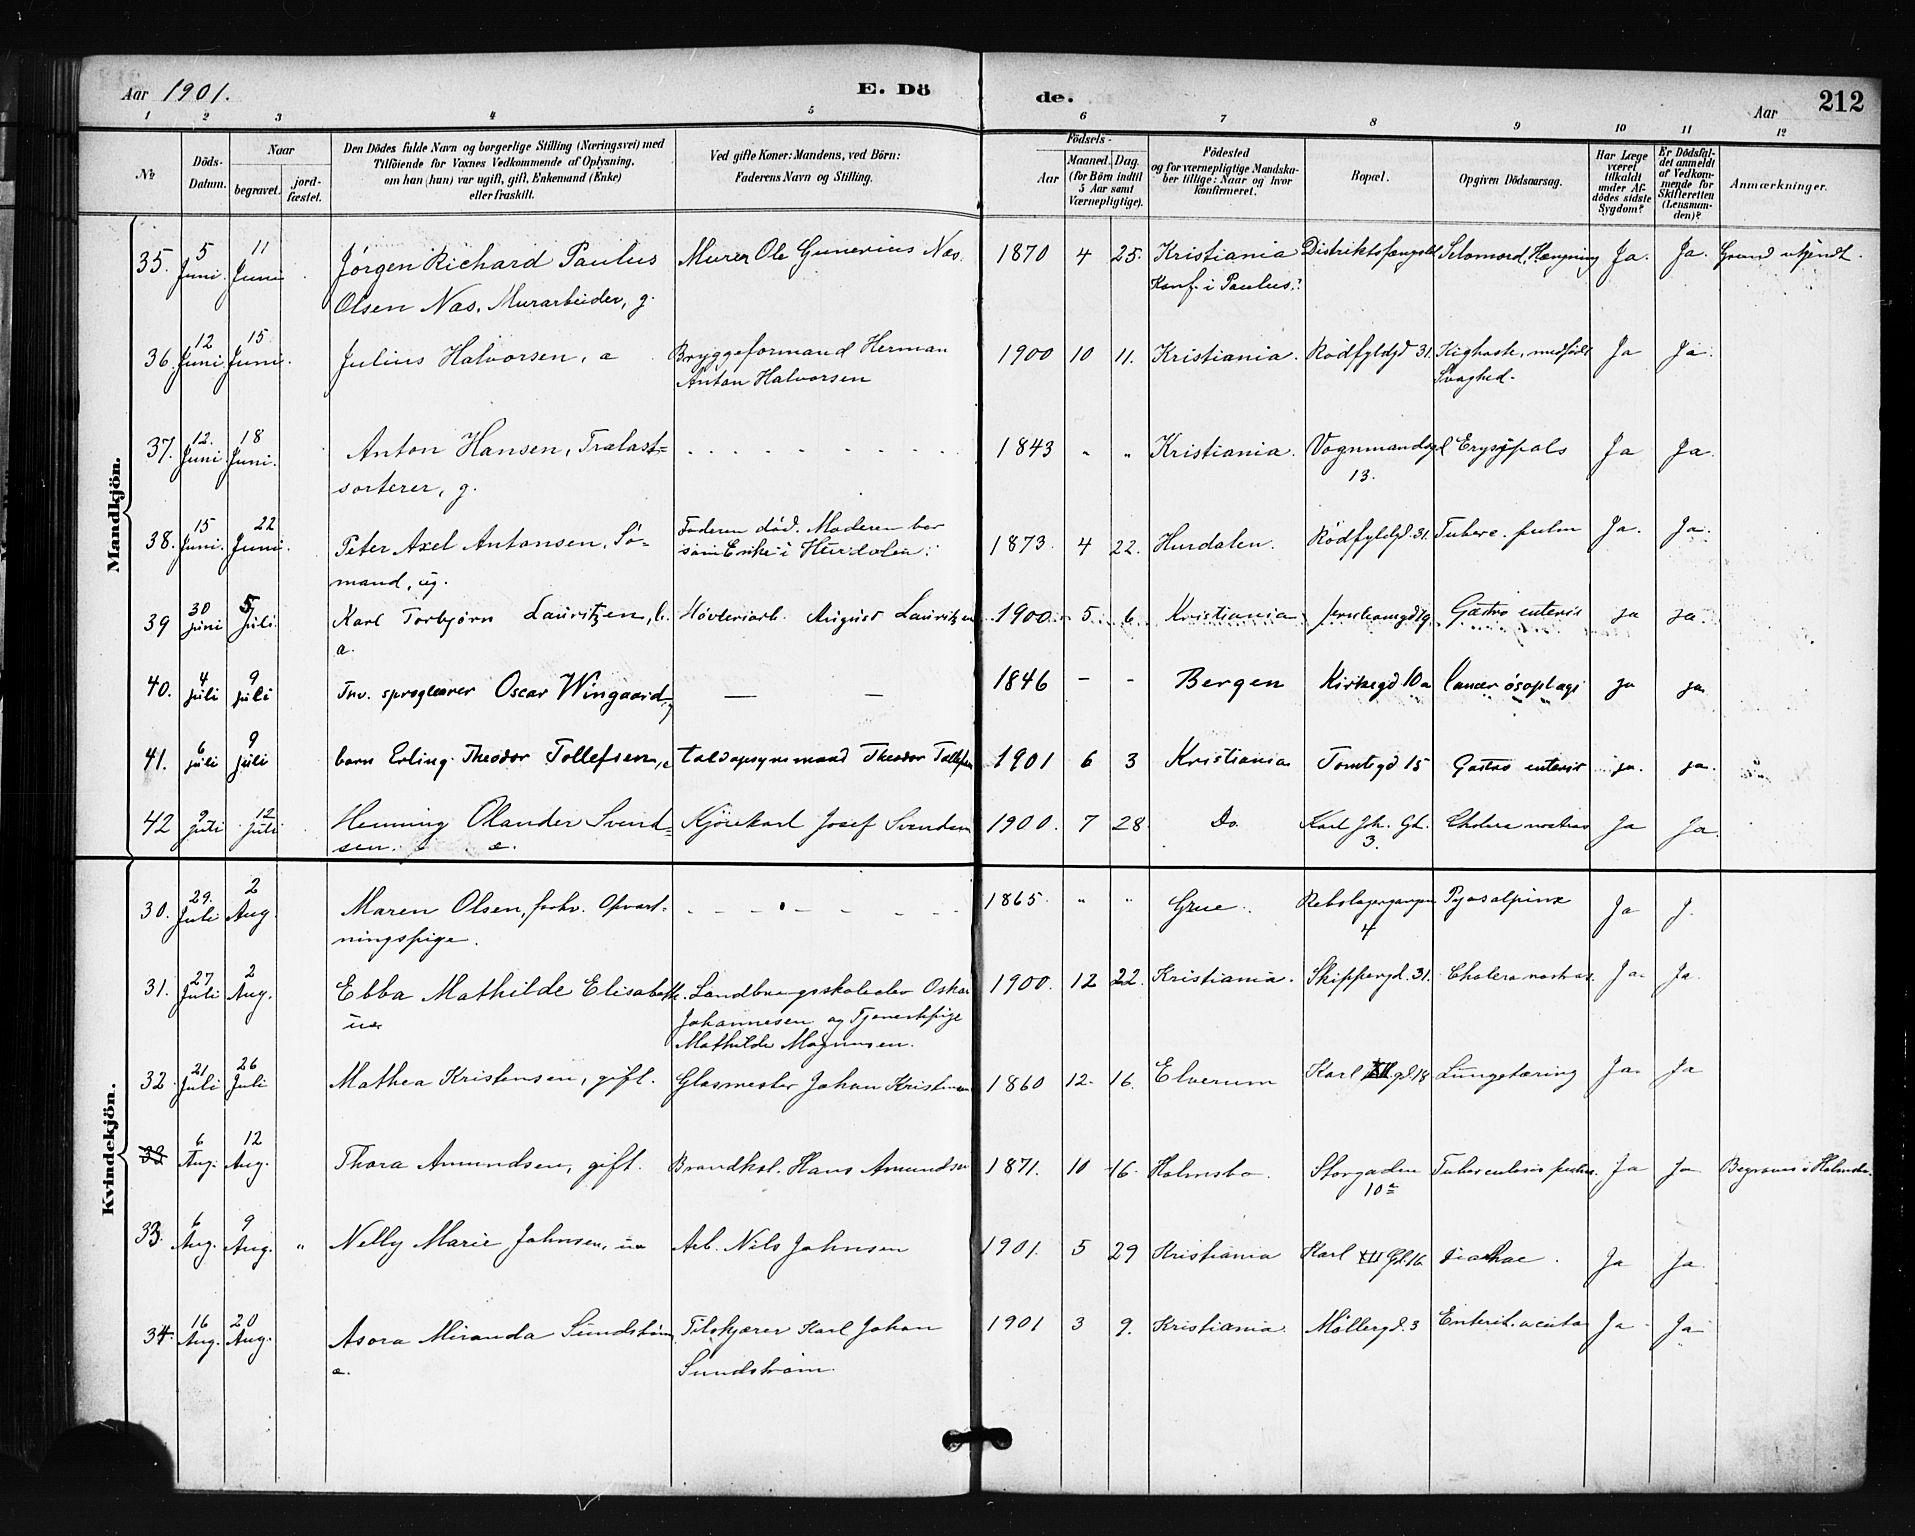 Aar 1901.
E. Dö
de.
Aar
212
1 2 3 4 5 6 7 8 9 10 11 12
No
Döds-Datum.
Naar
begravet.
jordfæstet.
Den Dödes fulde Navn og borgerlige Stilling (Næringsvei) med
Tilföiende for Voxnes Vedkommende af Oplysning,
om han (hun) var ugift, gift, Enkemand (Enke)
eller fraskilt.
Ved gifte Koner: Mandens, ved Börn:
Faderens Navn og Stilling.
Födsels-
Aar
Maaned. Dag.
(for Börn indtil
5 Aar samt
Værnepligtige).
Födested
og for værnepligtige Mandskaber tillige: Naar og hvor
konfirmeret.
Bopæl.
Opgiven Dödsaarsag.
Har Læge
været
tilkaldt
under Afdödes sidste
Sygdom?
Er Dödsfaldet anmeldt
af Vedkommende for
Skifteretten
(Lensmanden)?
Anmærkninger.
Mandkjön.
35. 5 Juni. 11 Juni Jörgen Richard Paulus Murer Ole Gunerius Næs. 1870 4 25. Kristiania Distriktsfængslet Selvmord, Hængning Ja. Ja. Grund ukjendt.
Olsen Næs. Murarbeider, g. Konf. i Paulus.
36. 12 Juni 15 Juni. Julius Halvorsen, a Bryggeformand Herman 1900 10 11. Kristiania. Rödfyldgd 31. Kighoste, medfödt Ja Ja.
Anton Halvorsen Svaghed.
37. 12. Juni 18 Juni. Anton Hansen, Trælast- 1843 " " Kristiania. Vognmandsgd Erysipels Ja Ja.
sorterer, g. 13.
38. 15 Juni. 22 Juni. Peter Axel Antonsen, Sö- Faderen död. Moderen bor 1873. 4 22. Hurdalen. Rödfyldgd. 31. Tuberc. pulm Ja. Ja.
mand, ug. som Enke i Hurdalen.
39 30 juni 5 juli. Karl Torbjørn Lauritzen, b. Høvleriarb. August Lauritzen 1900. 5. 6. Kristiania Gastro enterit ja ja.
a.
40. 4 juli 9 juli Inv. sproglærer Oscar Wingaard, — — 1846 - - Bergen Kirkegd 10a Cancer ja ja
41. 6 juli 9 juli barn Erling Theodor Tollefsen, toldopsynsmand Theodor Tollefsen 1901 6 3 Kristiania Tomtegd 15 Gastro enterit ja. ja.
42 9 juli 12 juli Henning Olander Svend- Kjörekarl Josef Svendsen 1900. 7 28. Do. Karl Joh. Gd. Cholera nostras Ja Ja
sen. 3.
Kvindekjön.
30. 29. Juli 2 Aug. Maren Olsen, forhv. Opvart- 1865. " " Grue. Rebslagergangen Pyosalpinx Ja J.
ningspige. 4
31. 27 Juli 2 Aug. Ebba Mathilde Elisabeth. Landbrugsskoleelev Oskar 1900. 12 22. Kristiania. Skippergd. 31. Cholera nostras. Ja Ja.
ua Johannesen og Tjenestepige
Mathilde Magnusen.
32. 21 Juli 26 Juli Mathea Kristensen, gift. Glasmester Johan Kristensen 1860 12. 16. Elverum Karl XII. gd. 18 Lungetæring Ja. Ja
33 6 Aug. 12 Aug. Thora Amundsen, gift. Brandkst. Hans Amundsen 1871. 10 16. Holmsbo. Storgaden Tuberculosis pulm. Ja Ja Begraves i Holmsbo.
10a
33. 6 Aug. 9 Aug. " Nelly Marie Johnsen, ua Arb. Nils Johnsen 1901. 5 29 Kristiania Karl XII Gd. 16 Ja Ja
34. 16 Aug. 20 Aug. Asora Miranda Sundström Filskjærer Karl Johan 1901 3 9. Kristiania. Möllergd. 3 Enterit. acuta Ja Ja
a. Sundström.